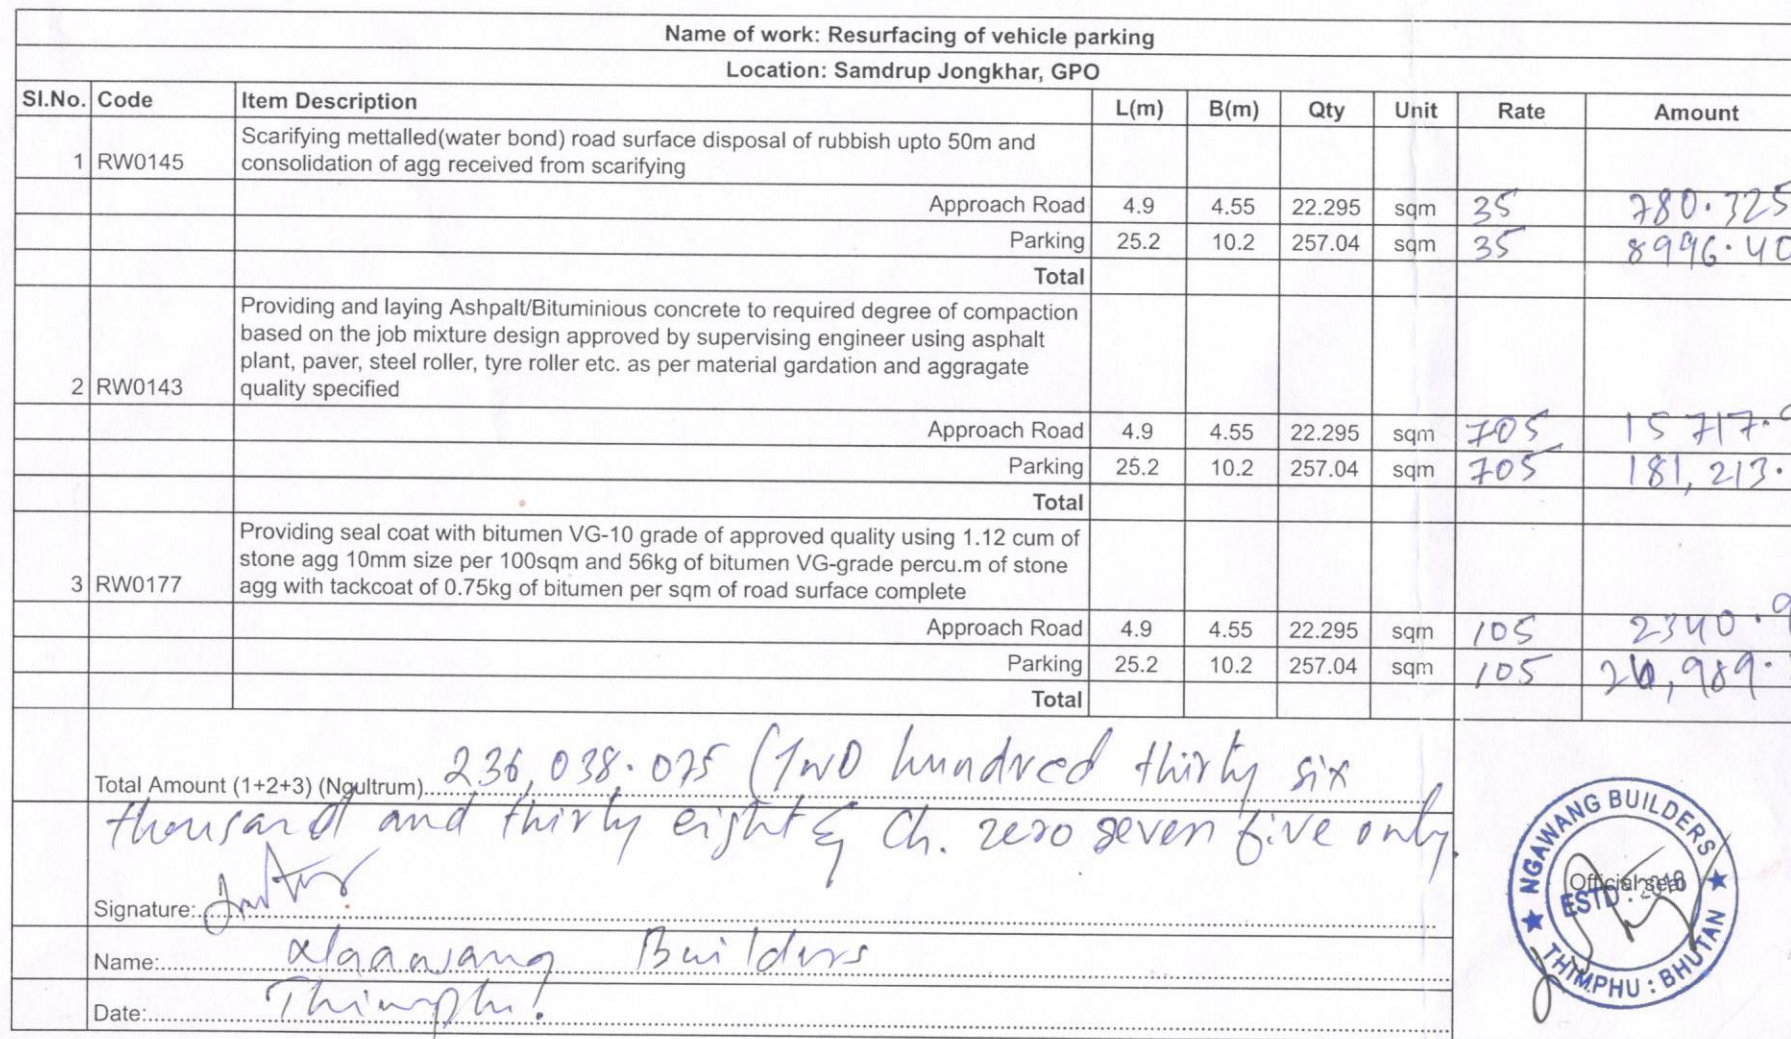 Name of work: Resurfacing of vehicle parking
Location: Samdrup Jongkhar, GPO
Sl.No. Code Item Description L(m) B(m) Qty Unit Rate Amount
Scarifying mettalled(water bond) road surface disposal of rubbish upto 50m and
1 RW0145 consolidation of agg received from scarifying
Approach Road 4.9 4.55 22.295 sqm 35 780.325
Parking 25.2 10.2 257.04 sqm 35 8996.40
Total
Providing and laying Ashpalt/Bituminious concrete to required degree of compaction
based on the job mixture design approved by supervising engineer using asphalt
plant, paver, steel roller, tyre roller etc. as per material gardation and aggragate
2 RW0143 quality specified
Approach Road 4.9 4.55 22.295 sqm 705 15717.
Parking 25.2 10.2 257.04 sqm 705 181,213.
Total
Providing seal coat with bitumen VG-10 grade of approved quality using 1.12 cum of
stone agg 10mm size per 100sqm and 56kg of bitumen VG-grade percu.m of stone
3 RW0177 agg with tackcoat of 0.75kg of bitumen per sqm of road surface complete
Approach Road 4.9 4.55 22.295 sqm 105 2340.9
Parking 25.2 10.2 257.04 sqm 105 26,989.
Total
Total Amount (1+2+3) (Ngultrum) 236,038.075 (Two hundred thirty six
thousand and thirty eight & Ch. zero seven five only.
Signature:
Name: Ngawang Builders
Date: Thimphu!
NGAWANG BUILDERS
Official seal
ESTD: 2010
THIMPHU : BHUTAN